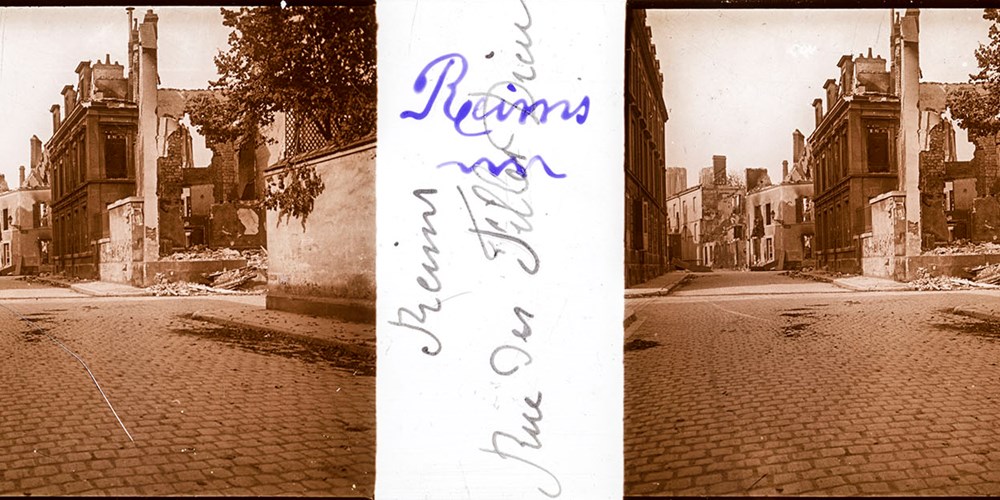 Reims
Reims
Rue Des Dieu